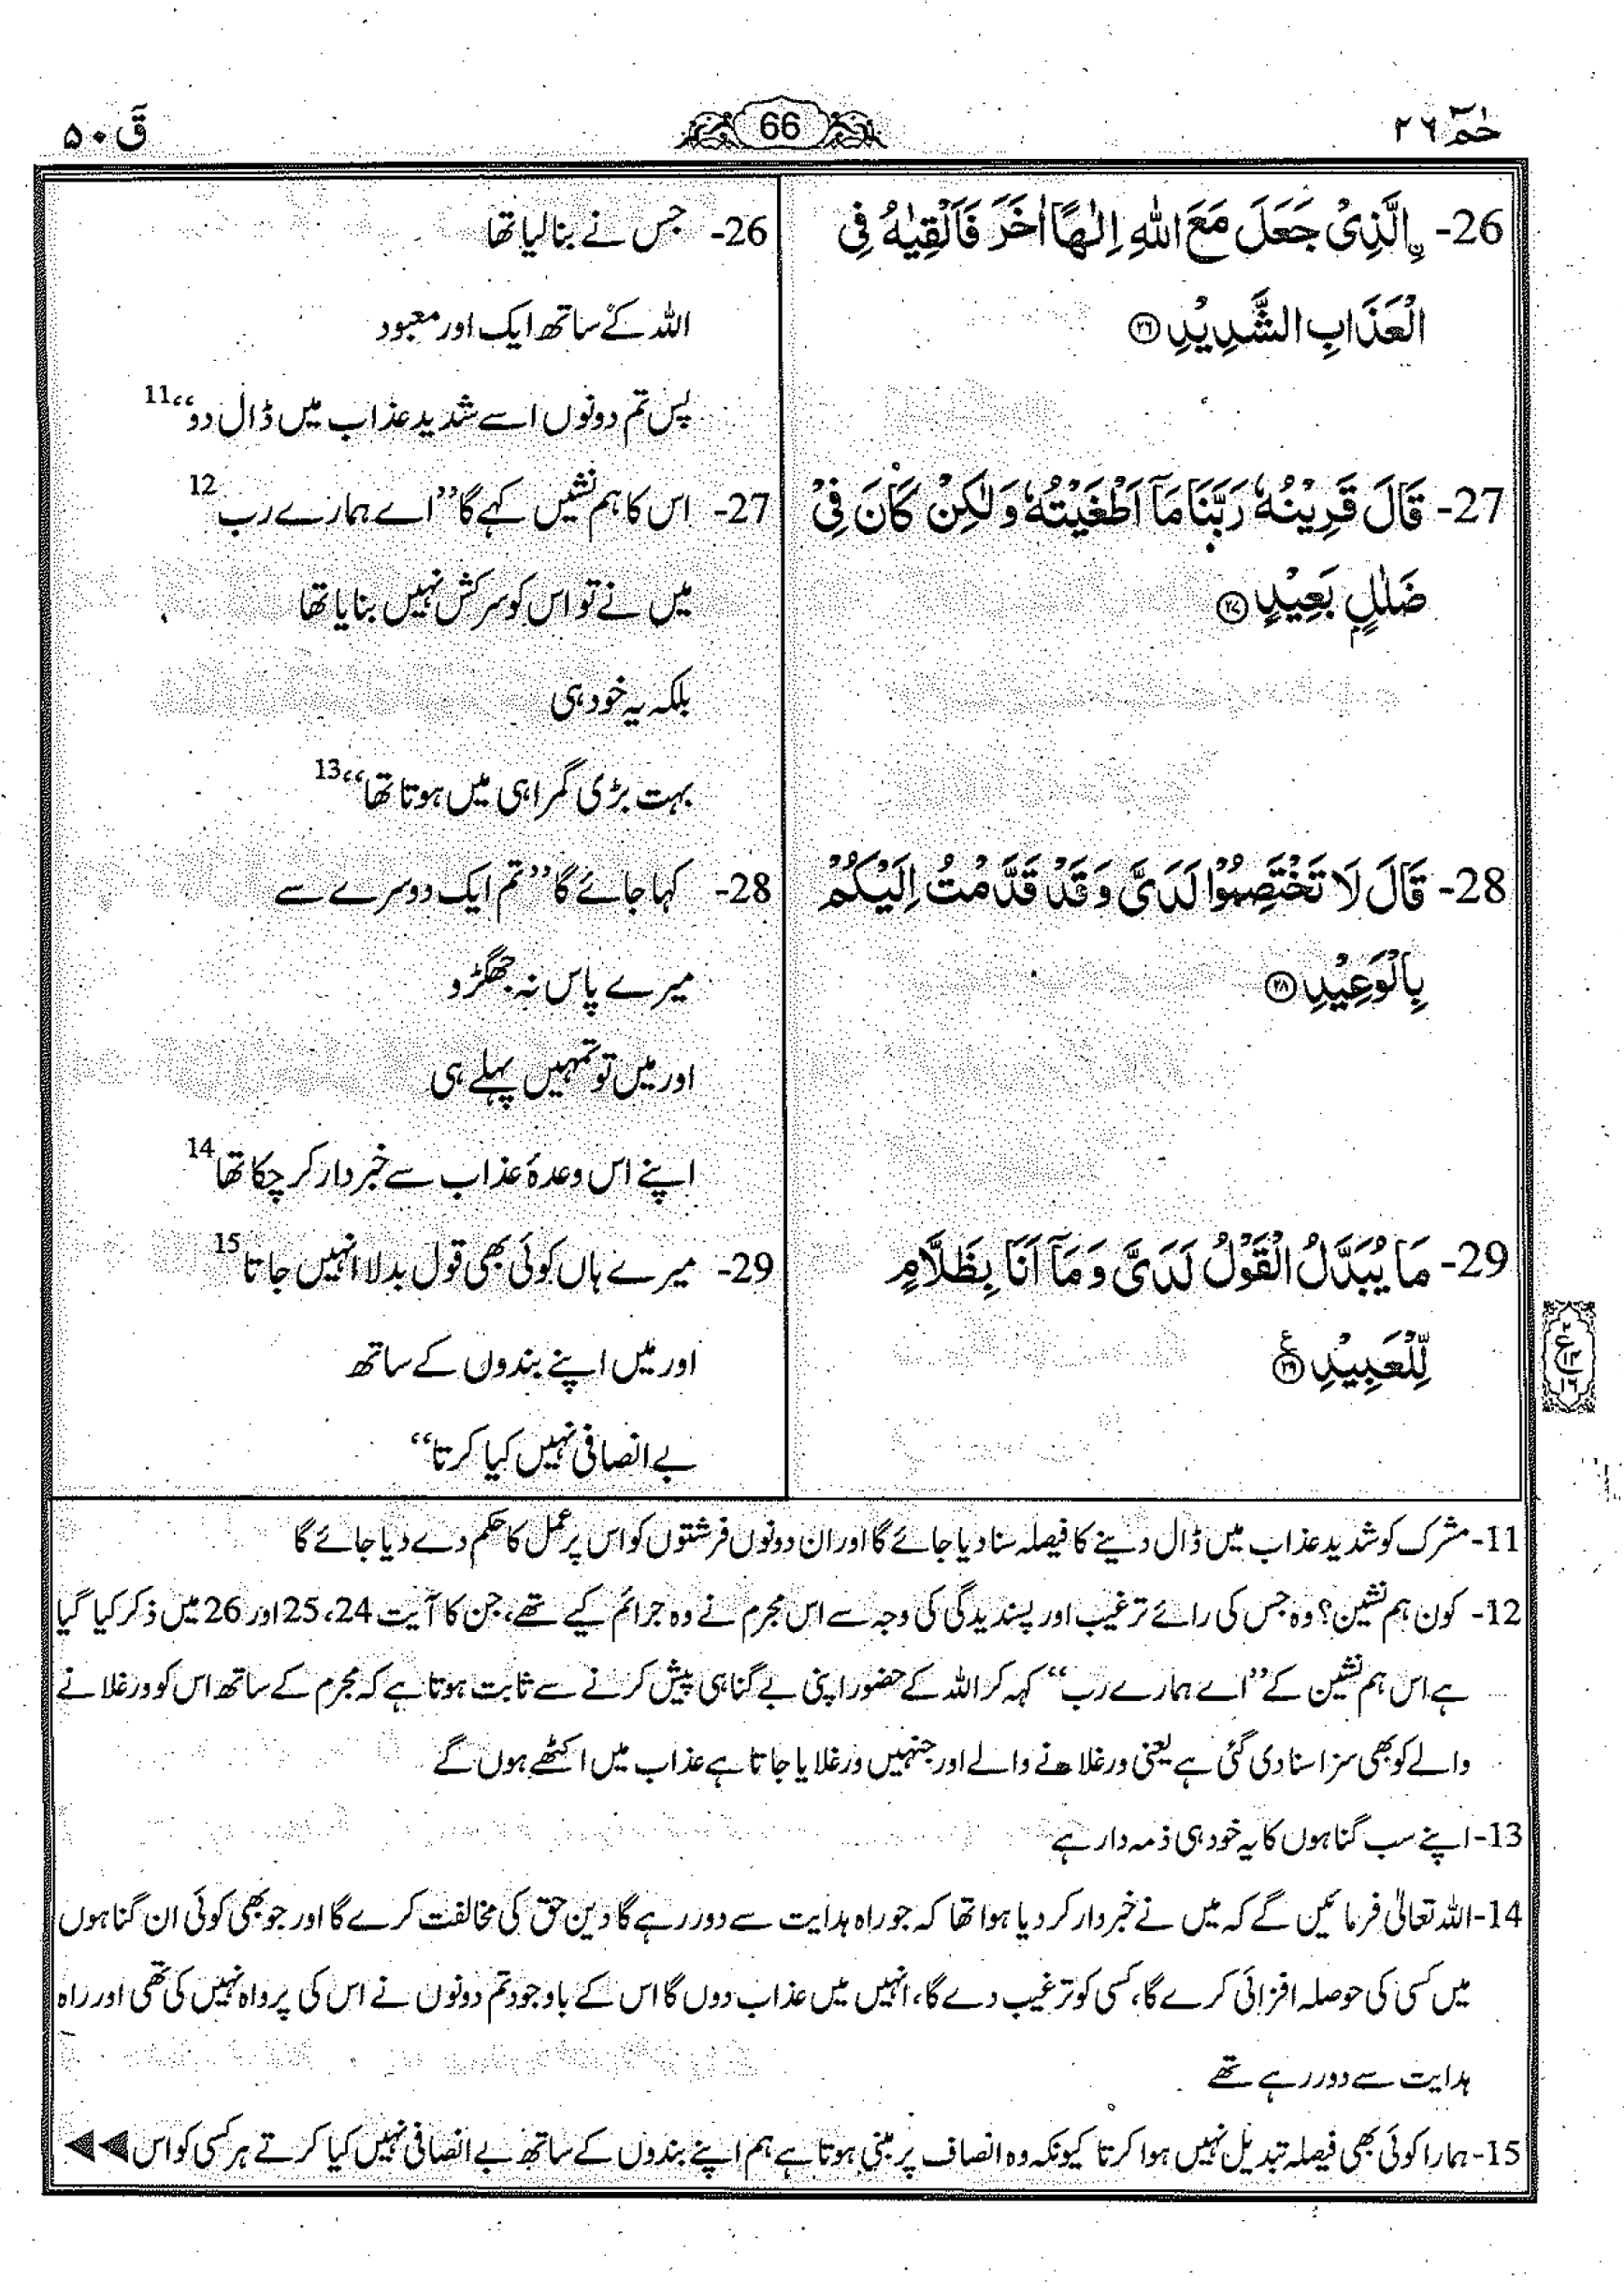 حٰمٓ ۲٦
66
قٓ ۵۰
26- ۣالَّذِیْ جَعَلَ مَعَ اللّٰهِ اِلٰهًا اٰخَرَ فَاَلْقِیٰهُ فِی
الْعَذَابِ الشَّدِیْدِ ۝۲۶
27- قَالَ قَرِیْنُهٗ رَبَّنَا مَاۤ اَطْغَیْتُهٗ وَلٰكِنْ كَانَ فِیْ
ضَلٰلٍۭ بَعِیْدٍ ۝۲۷
28- قَالَ لَا تَخْتَصِمُوْا لَدَیَّ وَقَدْ قَدَّمْتُ اِلَیْكُمْ
بِالْوَعِیْدِ ۝۲۸
29- مَا یُبَدَّلُ الْقَوْلُ لَدَیَّ وَمَاۤ اَنَا بِظَلَّامٍ
لِّلْعَبِیْدِ ۝۲۹ ع
۲
ع
۱۴
۱۶
26- جس نے بنا لیا تھا
اللہ کے ساتھ ایک اور معبود
پس تم دونوں اسے شدید عذاب میں ڈال دو“ 11
27- اس کا ہم نشیں کہے گا ”اے ہمارے رب 12
میں نے تو اس کو سرکش نہیں بنایا تھا
بلکہ یہ خود ہی
بہت بڑی گمراہی میں ہوتا تھا“ 13
28- کہا جائے گا ”تم ایک دوسرے سے
میرے پاس نہ جھگڑو
اور میں تو تمہیں پہلے ہی
اپنے اس وعدۂ عذاب سے خبردار کر چکا تھا 14
29- میرے ہاں کوئی بھی قول بدلا نہیں جاتا 15
اور میں اپنے بندوں کے ساتھ
بے انصافی نہیں کیا کرتا“
11- مشرک کو شدید عذاب میں ڈال دینے کا فیصلہ سنا دیا جائے گا اور ان دونوں فرشتوں کو اس پر عمل کا حکم دے دیا جائے گا
12- کون ہم نشین؟ وہ جس کی رائے ترغیب اور پسندیدگی کی وجہ سے اس مجرم نے وہ جرائم کیے تھے، جن کا آیت 24، 25 اور 26 میں ذکر کیا گیا
ہے اس ہم نشین کے ”اے ہمارے رب“ کہہ کر اللہ کے حضور اپنی بے گناہی پیش کرنے سے ثابت ہوتا ہے کہ مجرم کے ساتھ اس کو ورغلانے
والے کو بھی سزا سنا دی گئی ہے یعنی ورغلانے والے اور جنہیں ورغلایا جاتا ہے عذاب میں اکٹھے ہوں گے
13- اپنے سب گناہوں کا یہ خود ہی ذمہ دار ہے
14- اللہ تعالیٰ فرمائیں گے کہ میں نے خبردار کر دیا ہوا تھا کہ جو راہ ہدایت سے دور رہے گا دین حق کی مخالفت کرے گا اور جو بھی کوئی ان گناہوں
میں کسی کی حوصلہ افزائی کرے گا، کسی کو ترغیب دے گا، انہیں میں عذاب دوں گا اس کے باوجود تم دونوں نے اس کی پرواہ نہیں کی تھی اور راہ
ہدایت سے دور رہے تھے
15- ہمارا کوئی بھی فیصلہ تبدیل نہیں ہوا کرتا کیونکہ وہ انصاف پر مبنی ہوتا ہے ہم اپنے بندوں کے ساتھ بے انصافی نہیں کیا کرتے ہر کسی کو اس ◀◀